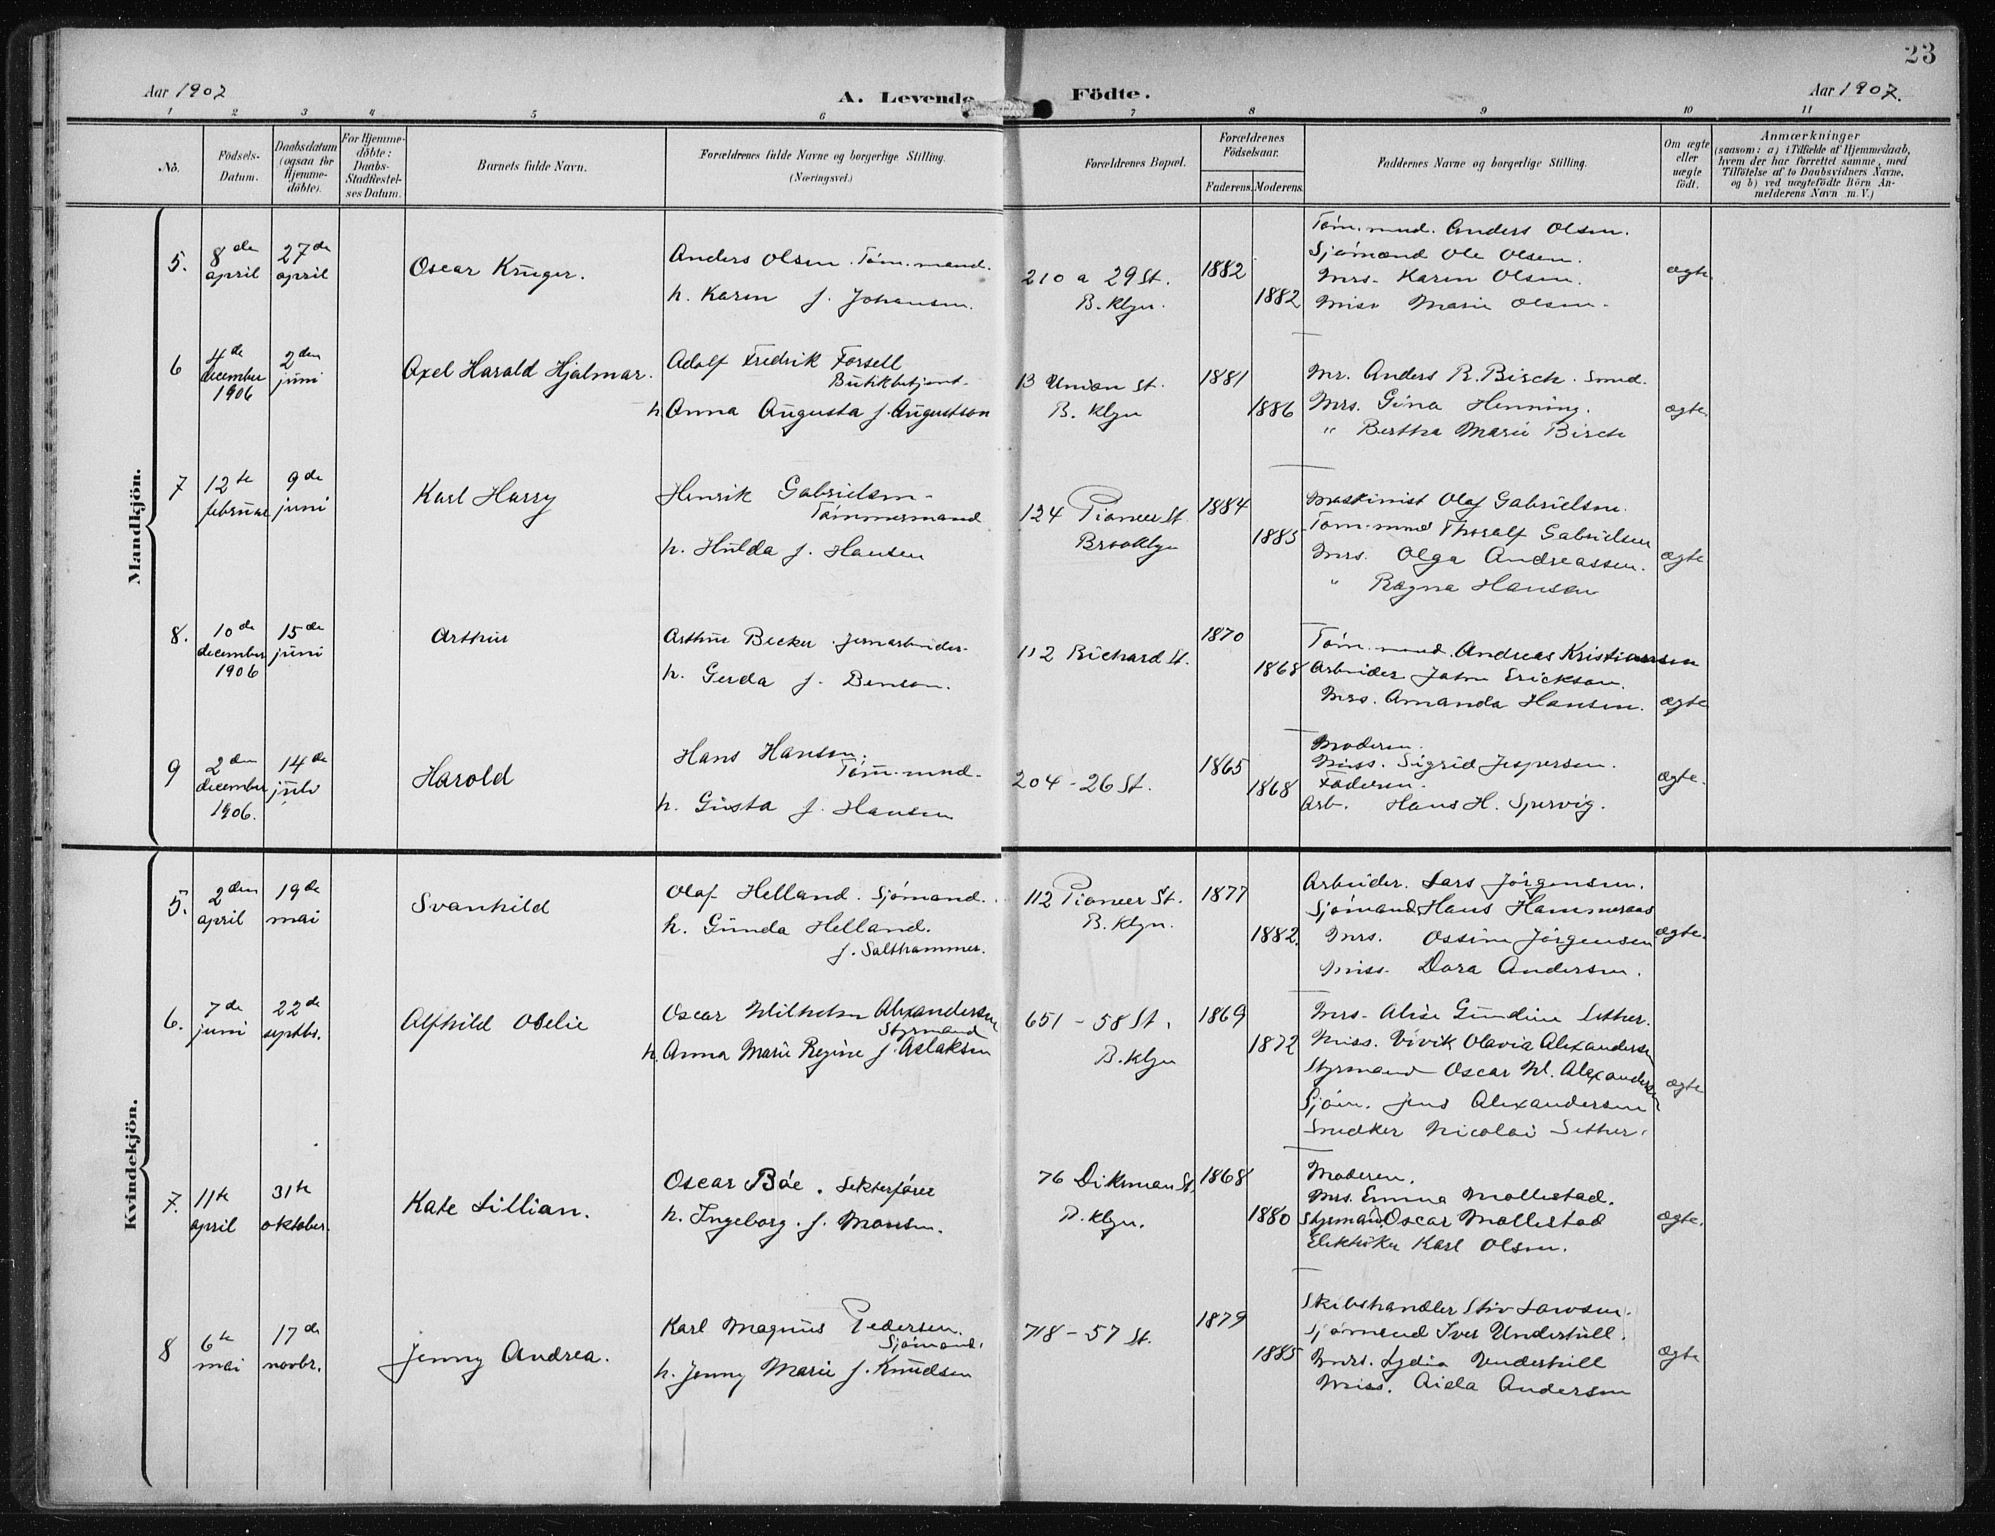 23
Aar 1907
A. Levende Födte.
Aar 1907.
1 2 3 4 5 6 7 8 9 10 11
No.
Födsels-Datum.
Daabsdatum (ogsaa for Hjemme-döbte).
For Hjemme-döbte: Daabs-Stadfæstel-ses Datum.
Barnets fulde Navn.
Forældrenes fulde Navne og borgerlige Stilling.
(Næringsvei.)
Forældrenes Bopæl.
Forældrenes Födselsaar.
Faderens. Moderens.
Faddernes Navne og borgerlige Stilling.
Om ægte eller uægte födt.
Anmærkninger
(saasom: a) i Tilfælde af Hjemmedaab,
hvem der har forrettet samme, med
Tilföielse af to Daabsvidners Navne,
og b) ved uægtefödte Börn An-
melderens Navn m. V.)
Mandkjön.
5. 8de april 27de april
Oscar Kruger.
Anders Olsen. Töm.mand.
h. Karen f. Johansen.
210 a 29 St.
B. klyn.
1882
1882
Töm.mnd. Anders Olsen.
Sjømand Ole Olsen.
Mrs. Karen Olsen.
Miss Marie Olsen.
ægte
6 4de december 1906 2den juni
Axel Harald Hjalmar.
Adolf Fredrik Forsell
Butikbetjent.
h. Anna Augusta f. Augustson
13 Union St.
B. klyn
1881
1886
Mr. Anders R. Birch. Smed.
Mrs. Gina Henning.
" Bertha Marie Birch
ægte
7 12te februar 9de juni
Karl Harry
Henrik Gabrielsen
Tömmermand
h. Hulda f. Hansen
124 Pioneer St.
Brooklyn
1884
1885
Maskinist Olaf Gabrielsen.
Töm.mnd Thoralf Gabrielsen
Mrs. Olga Andreassen.
" Ragna Hansen
ægte
8. 10de december 1906 15de juni
Arthur
Arthur Becker. Jernarbeider.
h. Gerda f. Benson.
112 Richard St.
1870
1868
Töm.mnd. Andreas Kristiansen
Arbeider John Erickson.
Mrs. Amanda Hansen.
ægte
9 2den december 1906. 14de juli
Harold
Hans Hansen.
Töm.mnd.
h. Gusta f. Hansen
204 - 26 St.
1865
1868
Moderen.
Miss. Sigrid Jespersen.
Faderen.
Arb. Hans H. Spervig.
ægte.
Kvindekjön.
5. 2den april 19de mai
Svanhild
Olaf Helland. Sjømand.
h. Gunda Helland.
f. Salthammer.
112 Pioneer St.
B. klyn.
1877
1882.
Arbeider. Lars Jörgensen.
Sjømand Hans Hammeraas
Mrs. Ossine Jörgensen
Miss. Dora Andersen.
ægte.
6. 7de juni 22de septbr.
Alfhild Obelie
Oscar Wilhelm Alexandersen
Styrmand
h. Anna Marie Regine f. Aslaksen
651 - 58 St.
B. klyn
1869
1872
Mrs. Alise Gundine Sether.
Miss. Vivik Olavia Alexandersen
Styrmand Oscar W. Alexandersen
Sjøm. Jens Alexandersen
Snedker Nicolai Sether.
ægte
7. 11te april 31te oktober.
Kate Lillian.
Oscar Böe. Lekterfører
h. Ingeborg. f. Monsen.
76 Dikeman St.
B. klyn.
1868
1880
Moderen.
Mrs. Emma Mollestad.
Styrmand Oscar Mollestad
Elektriker Karl Olsen.
ægte.
8 6te mai 17de novbr.
Jenny Andrea.
Karl Magnus Pedersen.
Sjømand.
h. Jenny Marie f. Knudsen
718 - 57 St.
1879
1885
Skibshandler Siv Larsen.
Sjømand Iver Underhill.
Mrs. Lydia Underhill
Miss. Aida Andersen
ægte